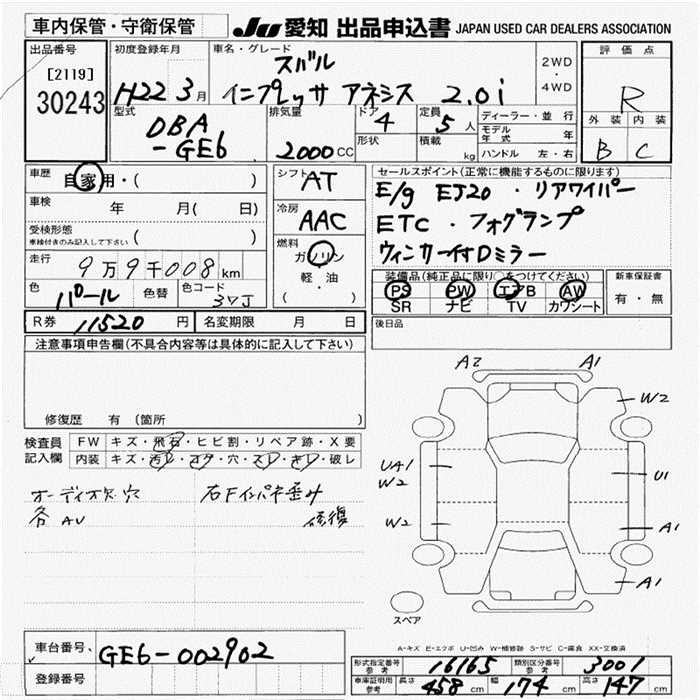 車内保管・守衛保管
JU 愛知 出品申込書 JAPAN USED CAR DEALERS ASSOCIATION
出品番号
[2119]
30243
初度登録年月
H22 3月
車名・グレード
スバル
インプレッサ アネシス 2.0i
2WD
・
4WD
評価点
R
外装 内装
B C
型式
DBA
-GE6
排気量
2000 CC
ドア
4
形状
定員
5 人
積載
kg
ディーラー・並行
モデル年式 年
ハンドル 左・右
車歴
自家用・( )
車検
年 月( 日)
受検形態
車検付きのみ記入して下さい ( )
走行
9万9千008 km
色
パール
色替
色コード
37J
シフト AT
冷房
AAC
燃料
ガソリン
軽・油
( )
セールスポイント(正常に機能するものに限ります)
E/g EJ20 ・ リアワイパー
ETC ・ フォグランプ
ウィンカー付Dミラー
装備品(純正品に限り○をつけてください)
PS PW エアB AW
SR ナビ TV カワシート
新車保証書
有・無
後日品
R券 11520 円
名変期限 月 日
注意事項申告欄(不具合内容等は具体的に記入して下さい)
修復歴 有 (箇所 )
検査員
記入欄
FW キズ・飛石・ヒビ割・リペア跡・X要
内装 キズ・汚レ・コゲ・穴・スレ・キレ・破レ
オーディオ欠 穴
各AU
右Fインパネ歪み
修復
A2 A1
W2
UA1
W2
U1
W2
A1
A1
スペア
A-キズ E-エクボ U-凹み W-補修跡 S-サビ C-腐食 XX-交換済
車台番号
GE6-002902
登録番号
形式指定番号
参考
16165
類別区分番号
参考
3001
車庫証明用
参考
長さ 458 cm
幅 174 cm
高さ 147 cm